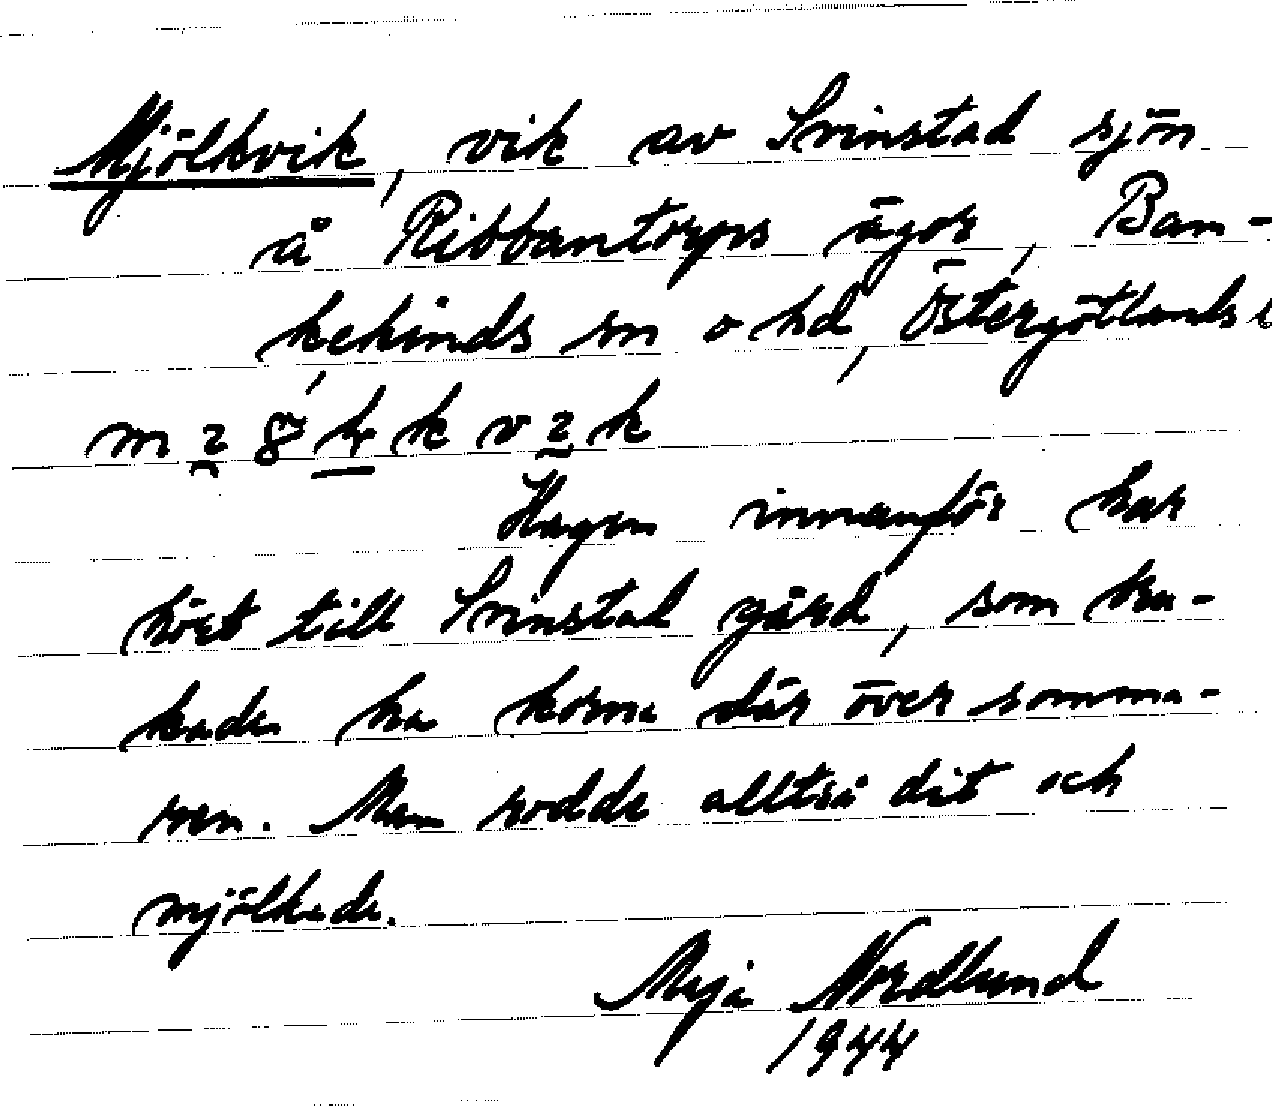 Mjölkvik, vik av Svinstad sjön
å Ribbantorps ägor, Ban-
kekinds sn o hd, Östergötlands
Hagen innanför har
hört till Svinstad gård, som bru-
kade ha korna där över somma-
ren. Man rodde alltså dit och
mjölkade.
Maja Nordlund
1944